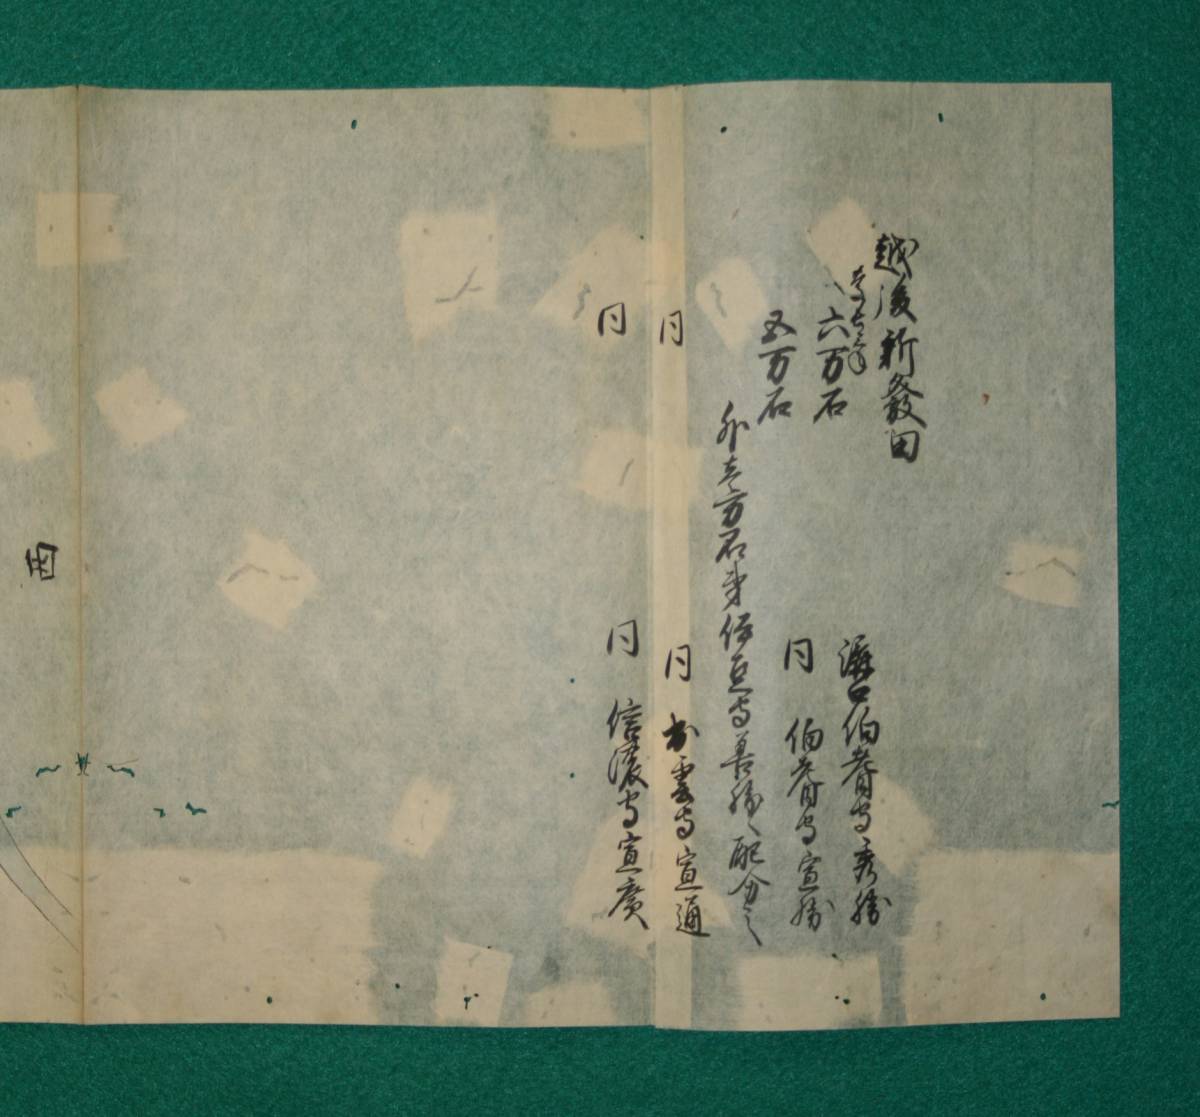 越後新發田
六万石 溝口伯耆守秀勝
五万石 同 伯耆守宣勝
外壱万石弟伊豆守善勝ヘ配分之
同 同 出雲守宣通
同 同 信濃守宣廣
田